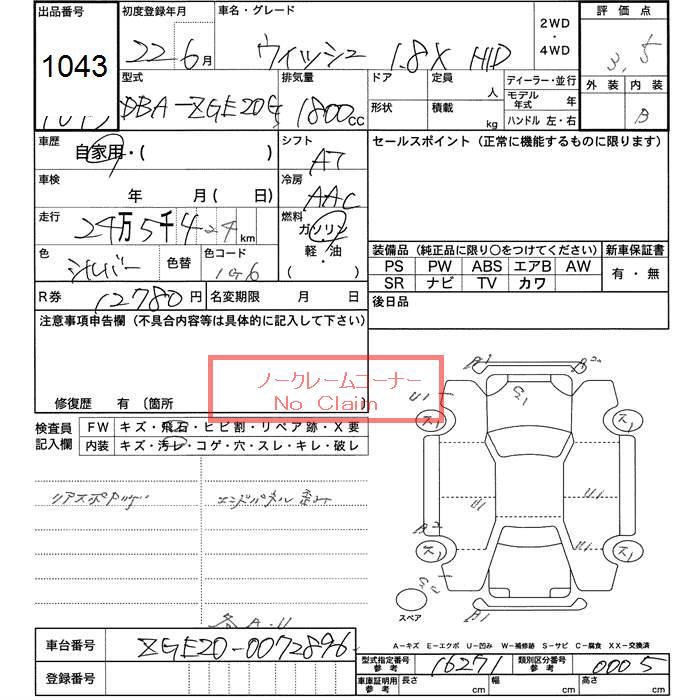 出品番号 初度登録年月 車名・グレード 2WD・4WD 評価点
1043 22 6月 ウィッシュ 1.8X HID 3.5
型式 排気量 ドア 定員 人 ディーラー・並行 外装 内装
DBA-ZGE20G 1800cc 形状 積載 kg モデル年式 年 B
ハンドル 左・右
車歴 自家用・( ) シフト AT セールスポイント (正定に機能するものに限ります)
車検 年 月( 日) 冷房 AAC
走行 24万5千424km 燃料 ガソリン・軽・油( )
色 シルバー 色替 色コード 1G6
装備品 (純正品に限り○をつけてください) 新車保証書
PS PW ABS エアB AW 有・無
SR ナビ TV カワ
R券 12780円 名変期限 月 日 後日品
注意事項申告欄 (不具合内容等は具体的に記入して下さい)
ノークレームコーナー
No Claim
修復歴 有 (箇所
検査員記入欄 FW キズ・飛石・ヒビ割・リペア跡・X要
内装 キズ・汚レ・コゲ・穴・スレ・キレ・破レ
リアスポ エンドパネル歪み
各A・U
A1 A2 G1 U1 ス1 ス1
U1 U1 A2 U1 U1 ス1 ス1 G2 A1
スペア
A-キズ E-エクボ U-凹み W-補修跡 S-サビ C-腐食 XX-交換済
車台番号 ZGE20-0072896
型式指定番号 参考 16271 類別区分番号 参考 0005
登録番号 車庫証明用 参考 長さ cm 幅 cm 高さ cm